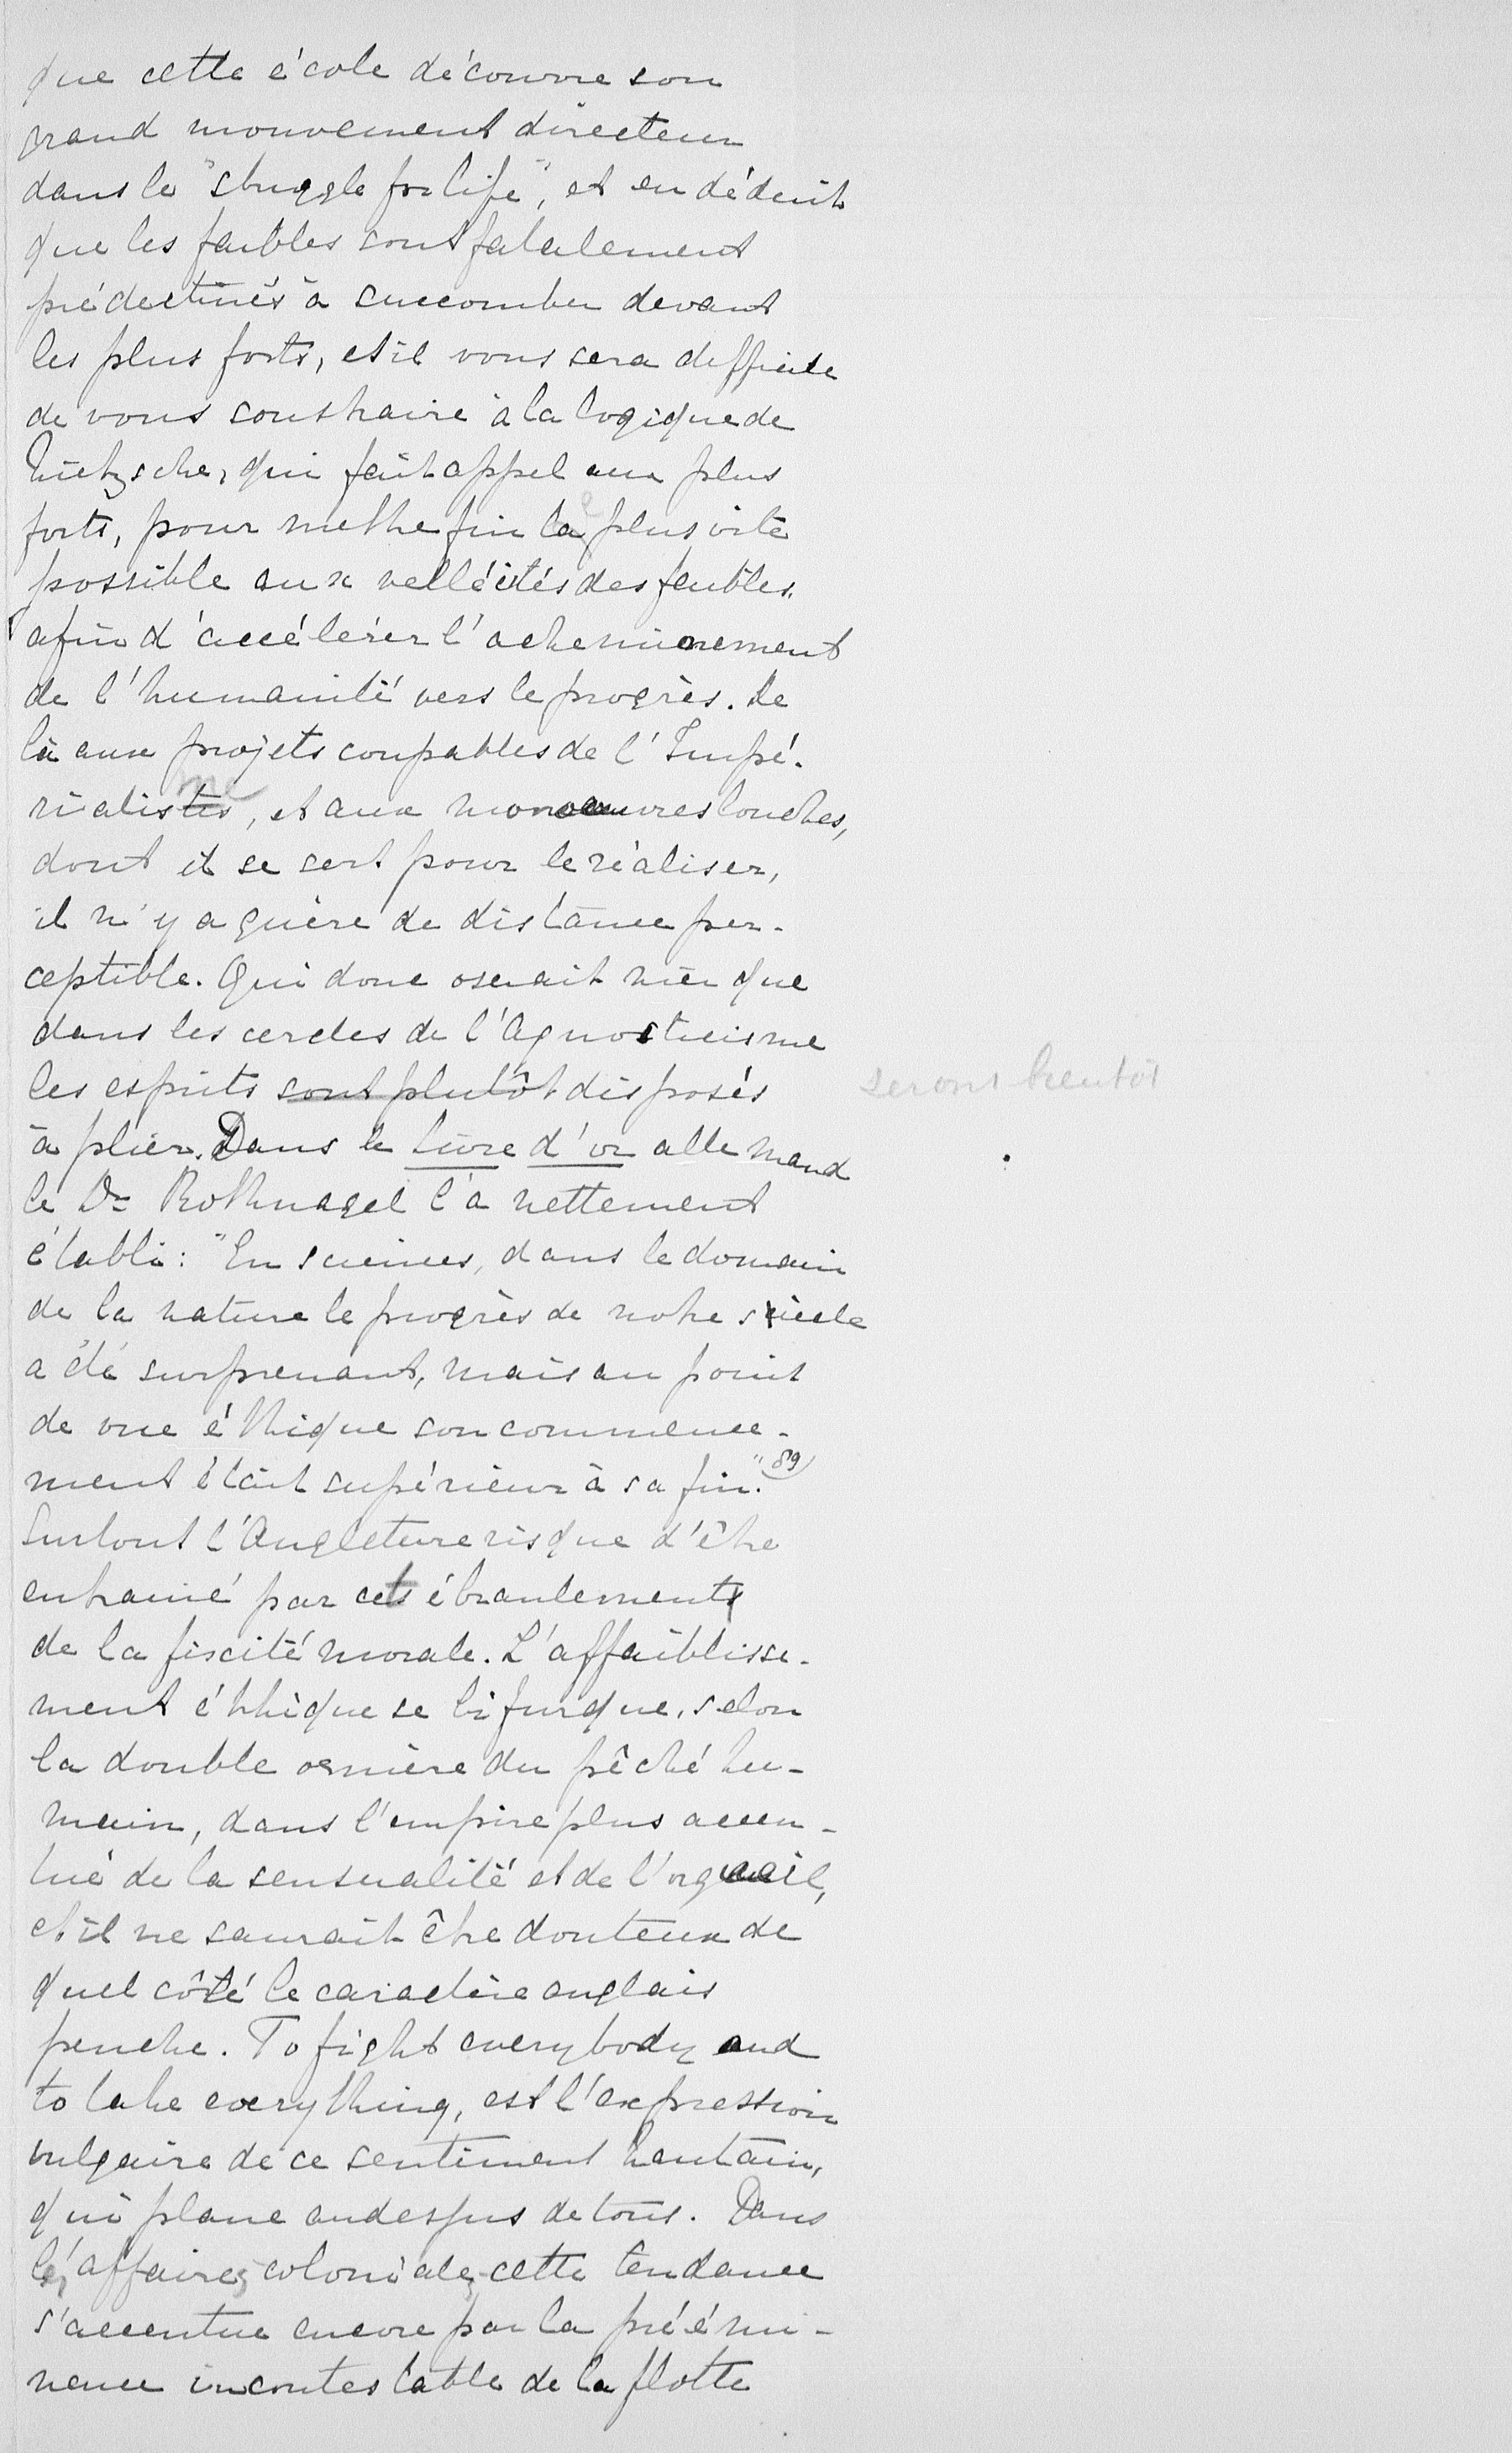 que cette école découvre son
grand mouvement directeur
dans le "struggle for life", et en déduit
que les faibles sont fatalement
prédestinés à succomber devant
les plus forts, et il vous sera difficile
de vous soustraire à la logique de
Nietzsche, qui fait appel aux plus
forts, pour mettre fin la plus vite
possible aux velléités des faibles.
afin d'accélérer l'acheminement
de l'humanité vers le progrès. De
là aux projets coupables de l'Impé-
rialistes, et aux manœuvres louches,
me
dont il se sert pour le réaliser,
il n'y a guère de distance per-
ceptible. Qui donc oserait nier que
dans les cercles de l'Agnosticisme
les esprits sont plutôt disposés
seront bientôt
à plier. Dans le livre d'or allemand
le Dr Rothnagel l'a nettement
établi: "En sciences, dans le domain
de la nature le progrès de notre siècle
a été surprenant, mais au point
de vue éthique son commence-
ment était supérieur à sa fin." 89)
Surtout l'Angleterre risque d'être
entrainé par cets ébranlements
de la fixité morale. L'affaiblisse-
ment éthique se bifurque, selon
la double ornière du pêché hu-
main, dans l'empire plus accen-
tué de la sensualité et de l'orgueil,
et il ne saurait être douteux de
quel côté le caractère anglais
penche. To fight everybody and
to take everything, est l'expression
vulgaire de ce sentiment hautain,
qui plane audessus de tous. Dans
les affaires coloniales cette tendance
s'accentue encore par la préémi-
nence incontestable de la flotte